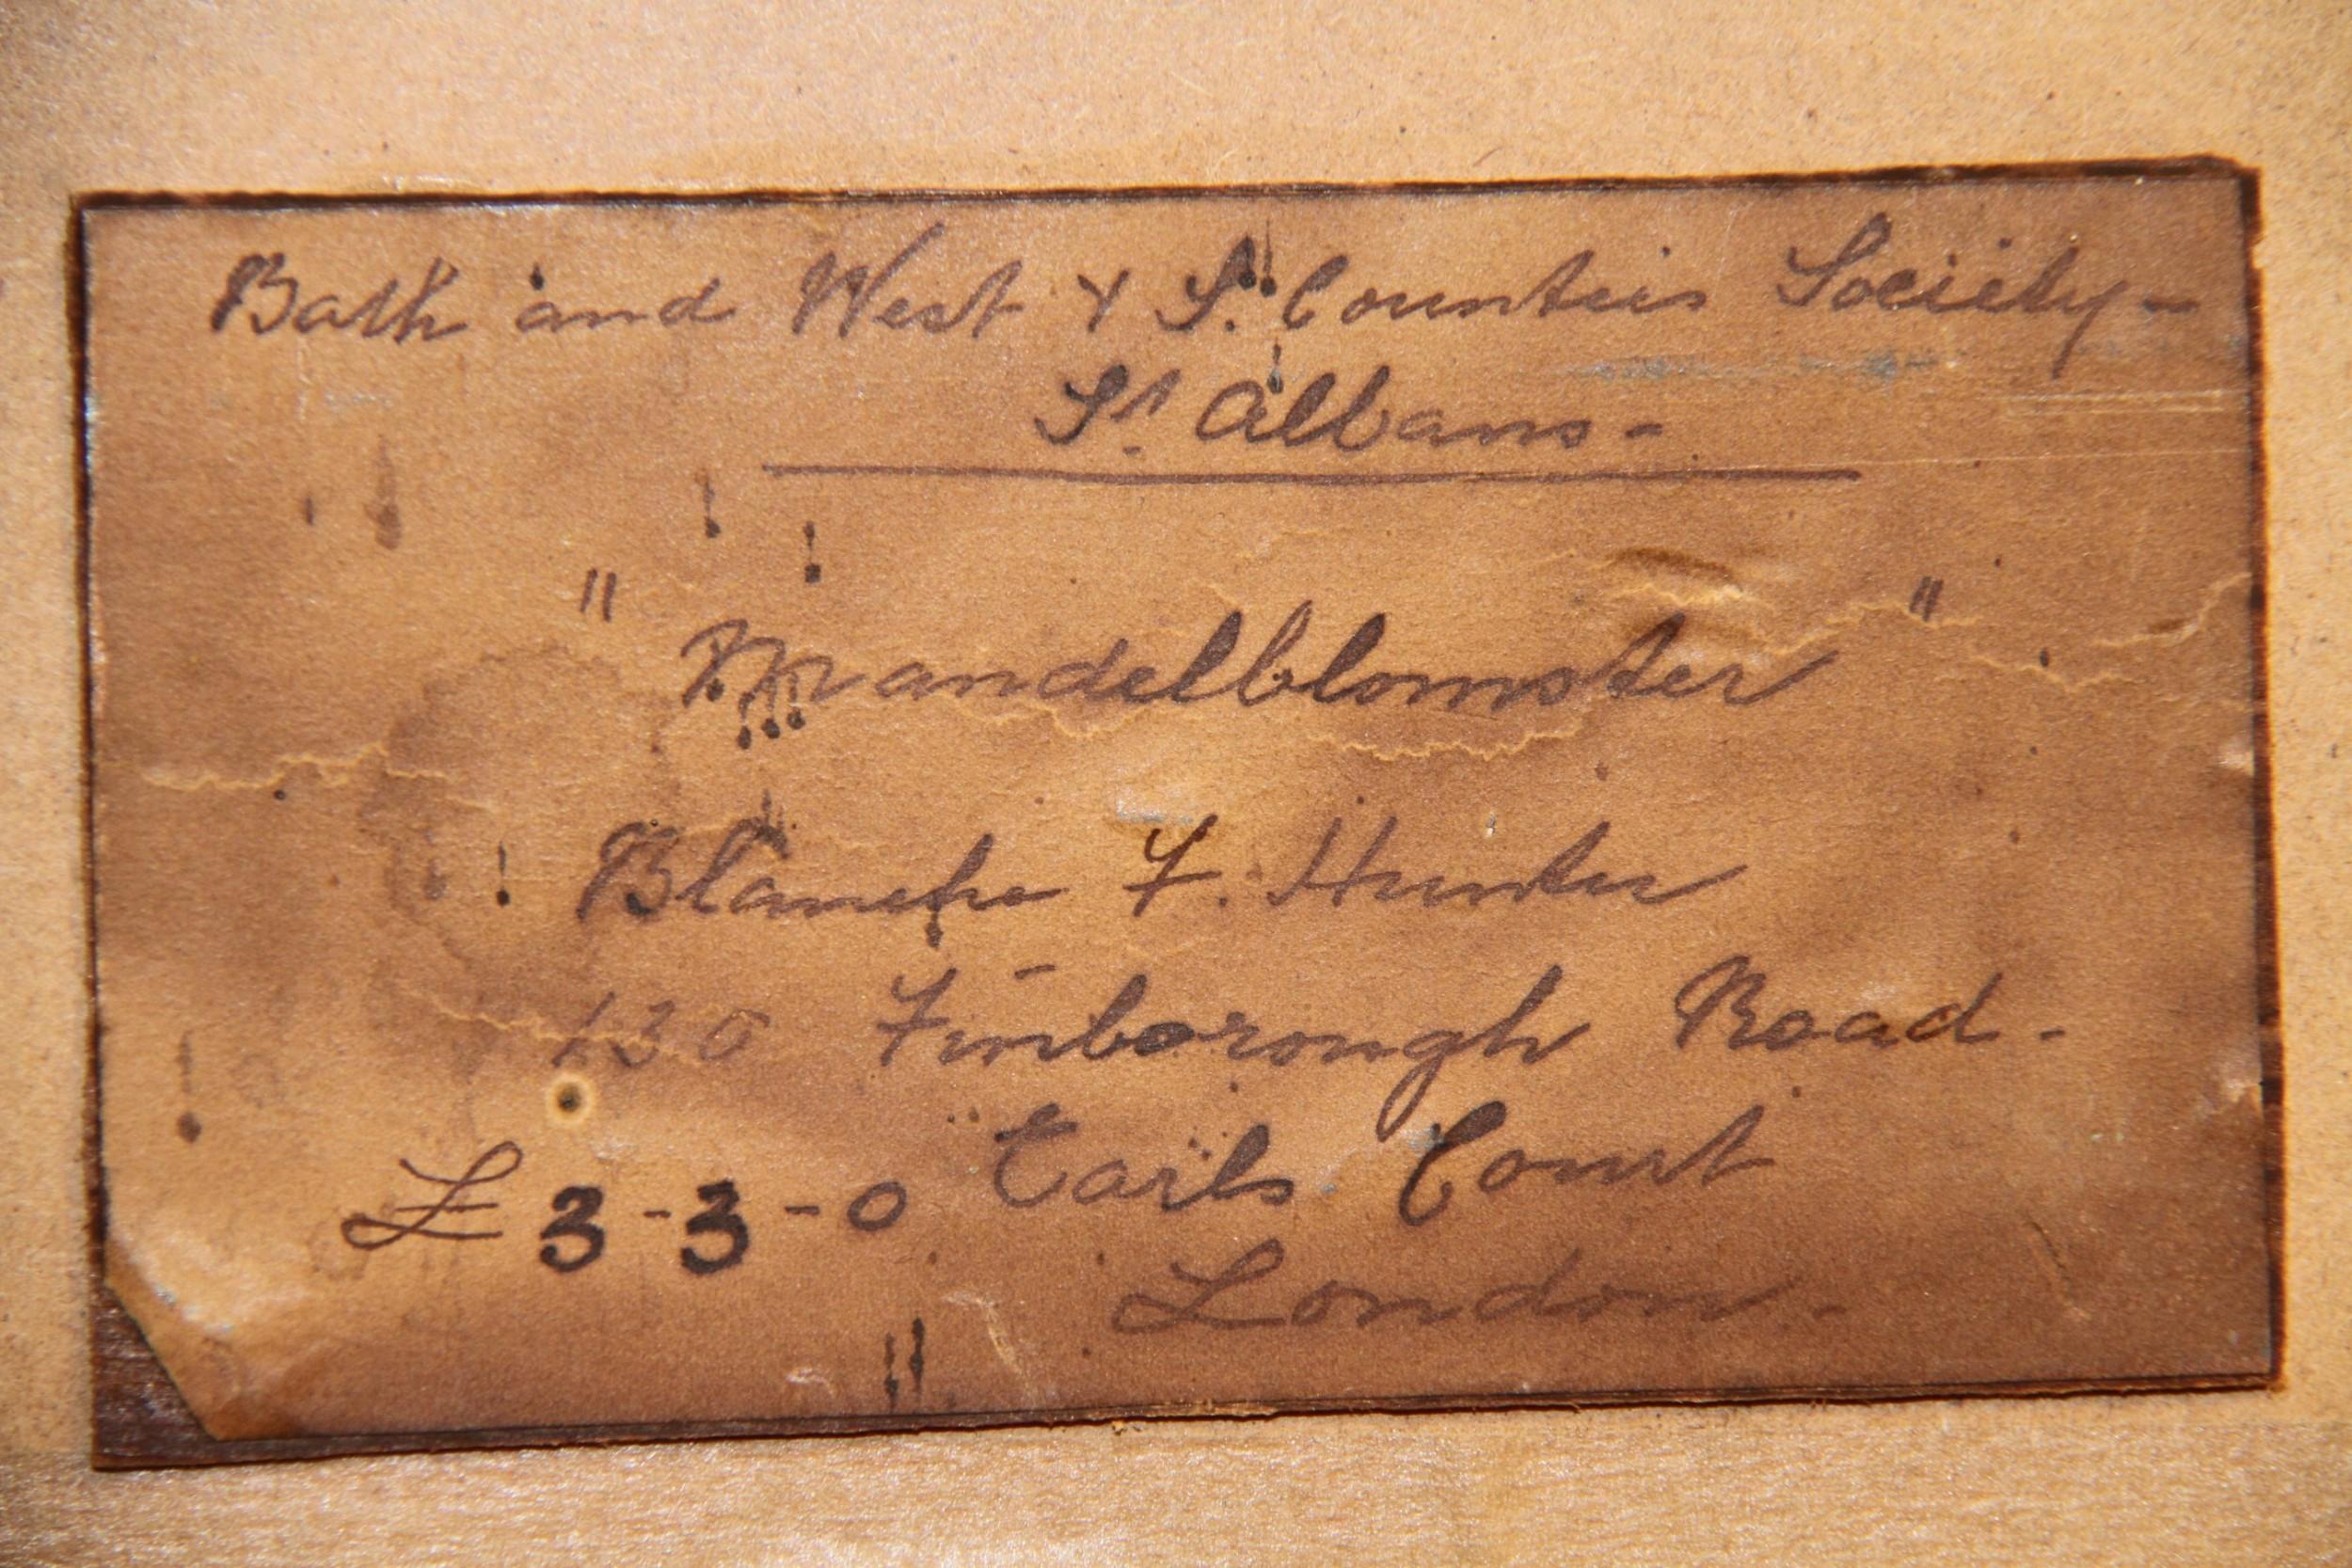 Bath and West & S. Counties Society -
St Albans -
"Mandelblomster"
Blanche F. Hunter
130 Finborough Road -
Earls Court
£3-3-0
London -